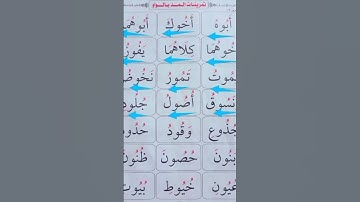 تدريبات المد بالواو
أَبُوهُ أَخُوكَ أَبُوهُمَا
خُوهُمَا كِلَاهُمَا يَفُوزُ
تَمُوتُ تَمُورُ نَخُوضُ
نَسُوقُ أُصُولُ جُلُودُ
جُذُوعِ وَقُودُ حُدُودُ
بَنُونَ حُصُونَ ظُنُونَ
عُيُونٍ خُيُوطِ بُيُوتِ